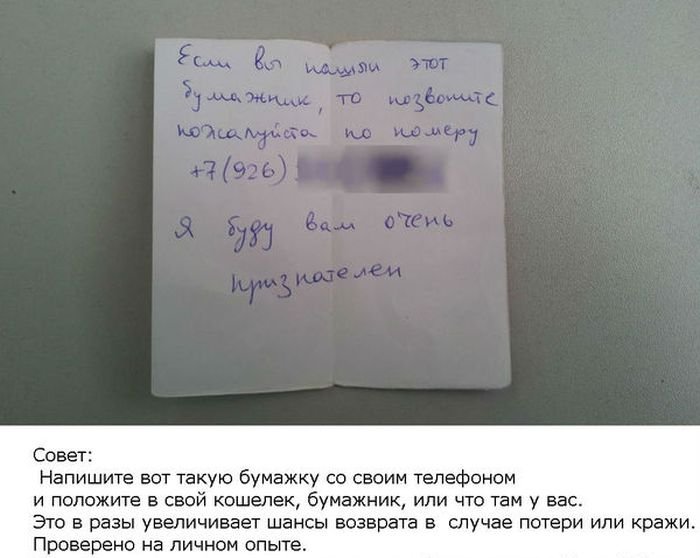 Если вы нашли этот
бумажник, то позвоните
пожалуйста по номеру
+7(926)
Я буду вам очень
признателен
Совет:
Напишите вот такую бумажку со своим телефоном
и положите в свой кошелек, бумажник, или что там у вас.
Это в разы увеличивает шансы возврата в случае потери или кражи.
Проверено на личном опыте.